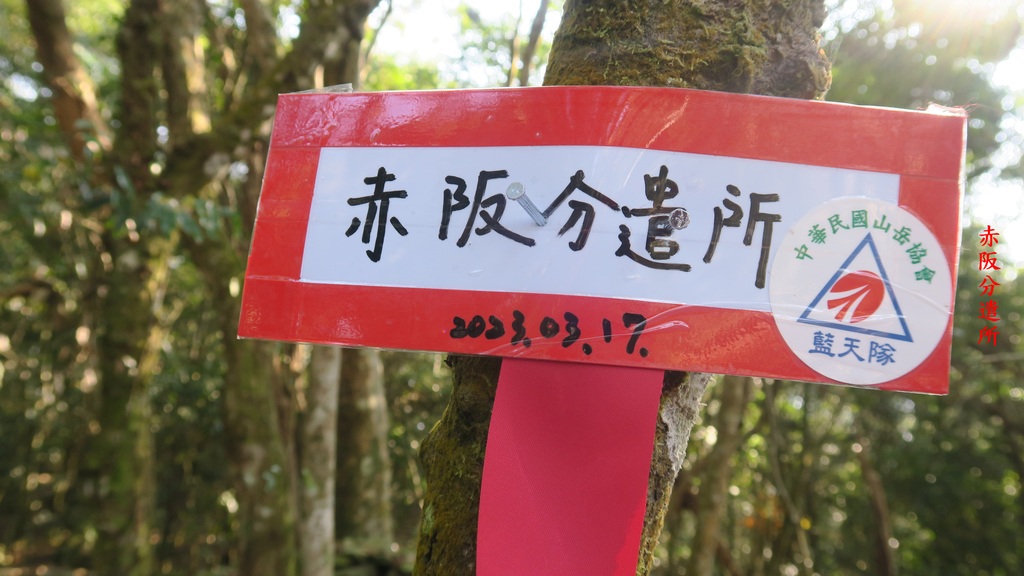 赤阪分遣所
2023.03.17.
中華民國山岳協會
藍天隊
赤阪分遣所